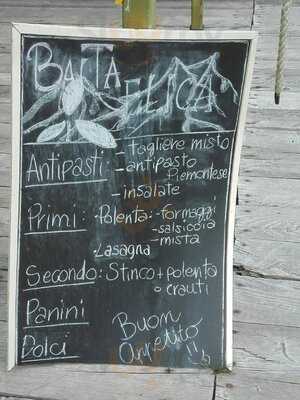 BAITA
ELICA
Antipasti: - tagliere misto
- antipasto
Piemontese
- insalate
Primi: ·Polenta: - formaggi
- salsiccia
- mista
·Lasagna
Secondo: Stinco + polenta
o crauti
Panini
Dolci
Buon
Appetito!!